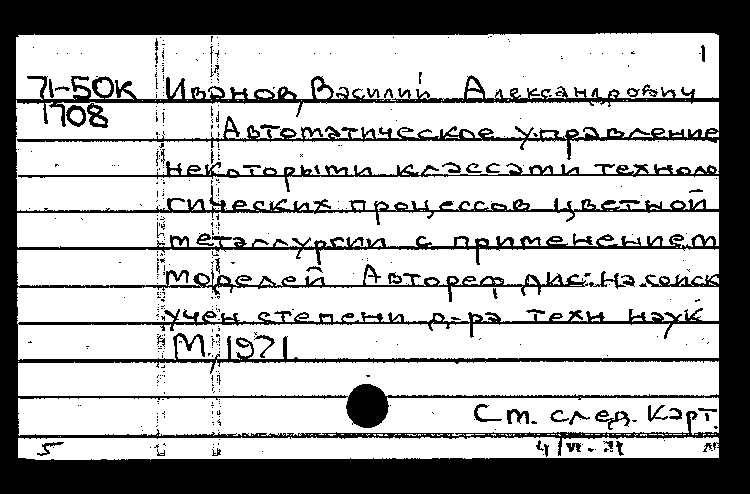 1
71-50к Иванов, Василий Александрович
1708
Автоматическое управление
некоторыми классами техноло
гических процессов цветной
металлургии с применением
моделей Автореф дис. на соиск
учен степени д-ра техн наук
М., 1971.
См. след. карт.
5